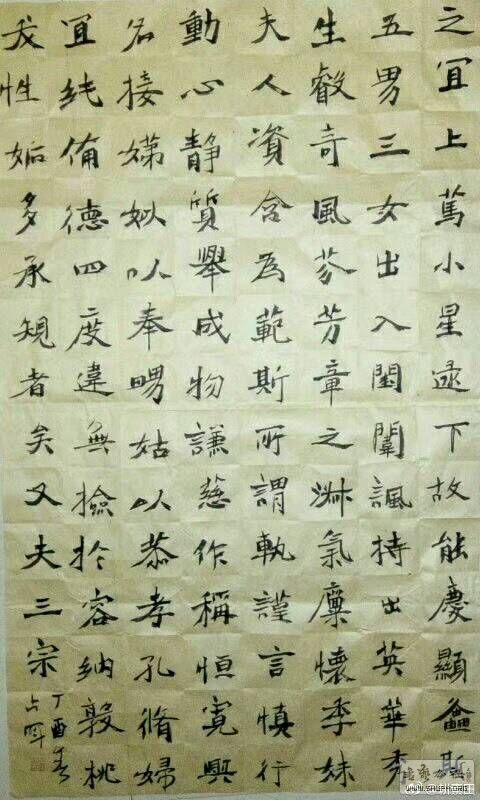 之宜上篤小星逮下故能慶顯斯
五男三女出入閨闈諷持出英華秀
生叡奇風芬芳章之淋氣麇懷季妹
夫人資含為範斯所謂執謹言慎行
動心靜質舉成物謙慈作稱恒寬興
名接娣姒以奉姑以恭孝孔脩婦
宜純備德四度違無撿於容納敦桃
我性姤多承規者矣又夫三宗
丁酉春
WWW.SHUFA.ORG